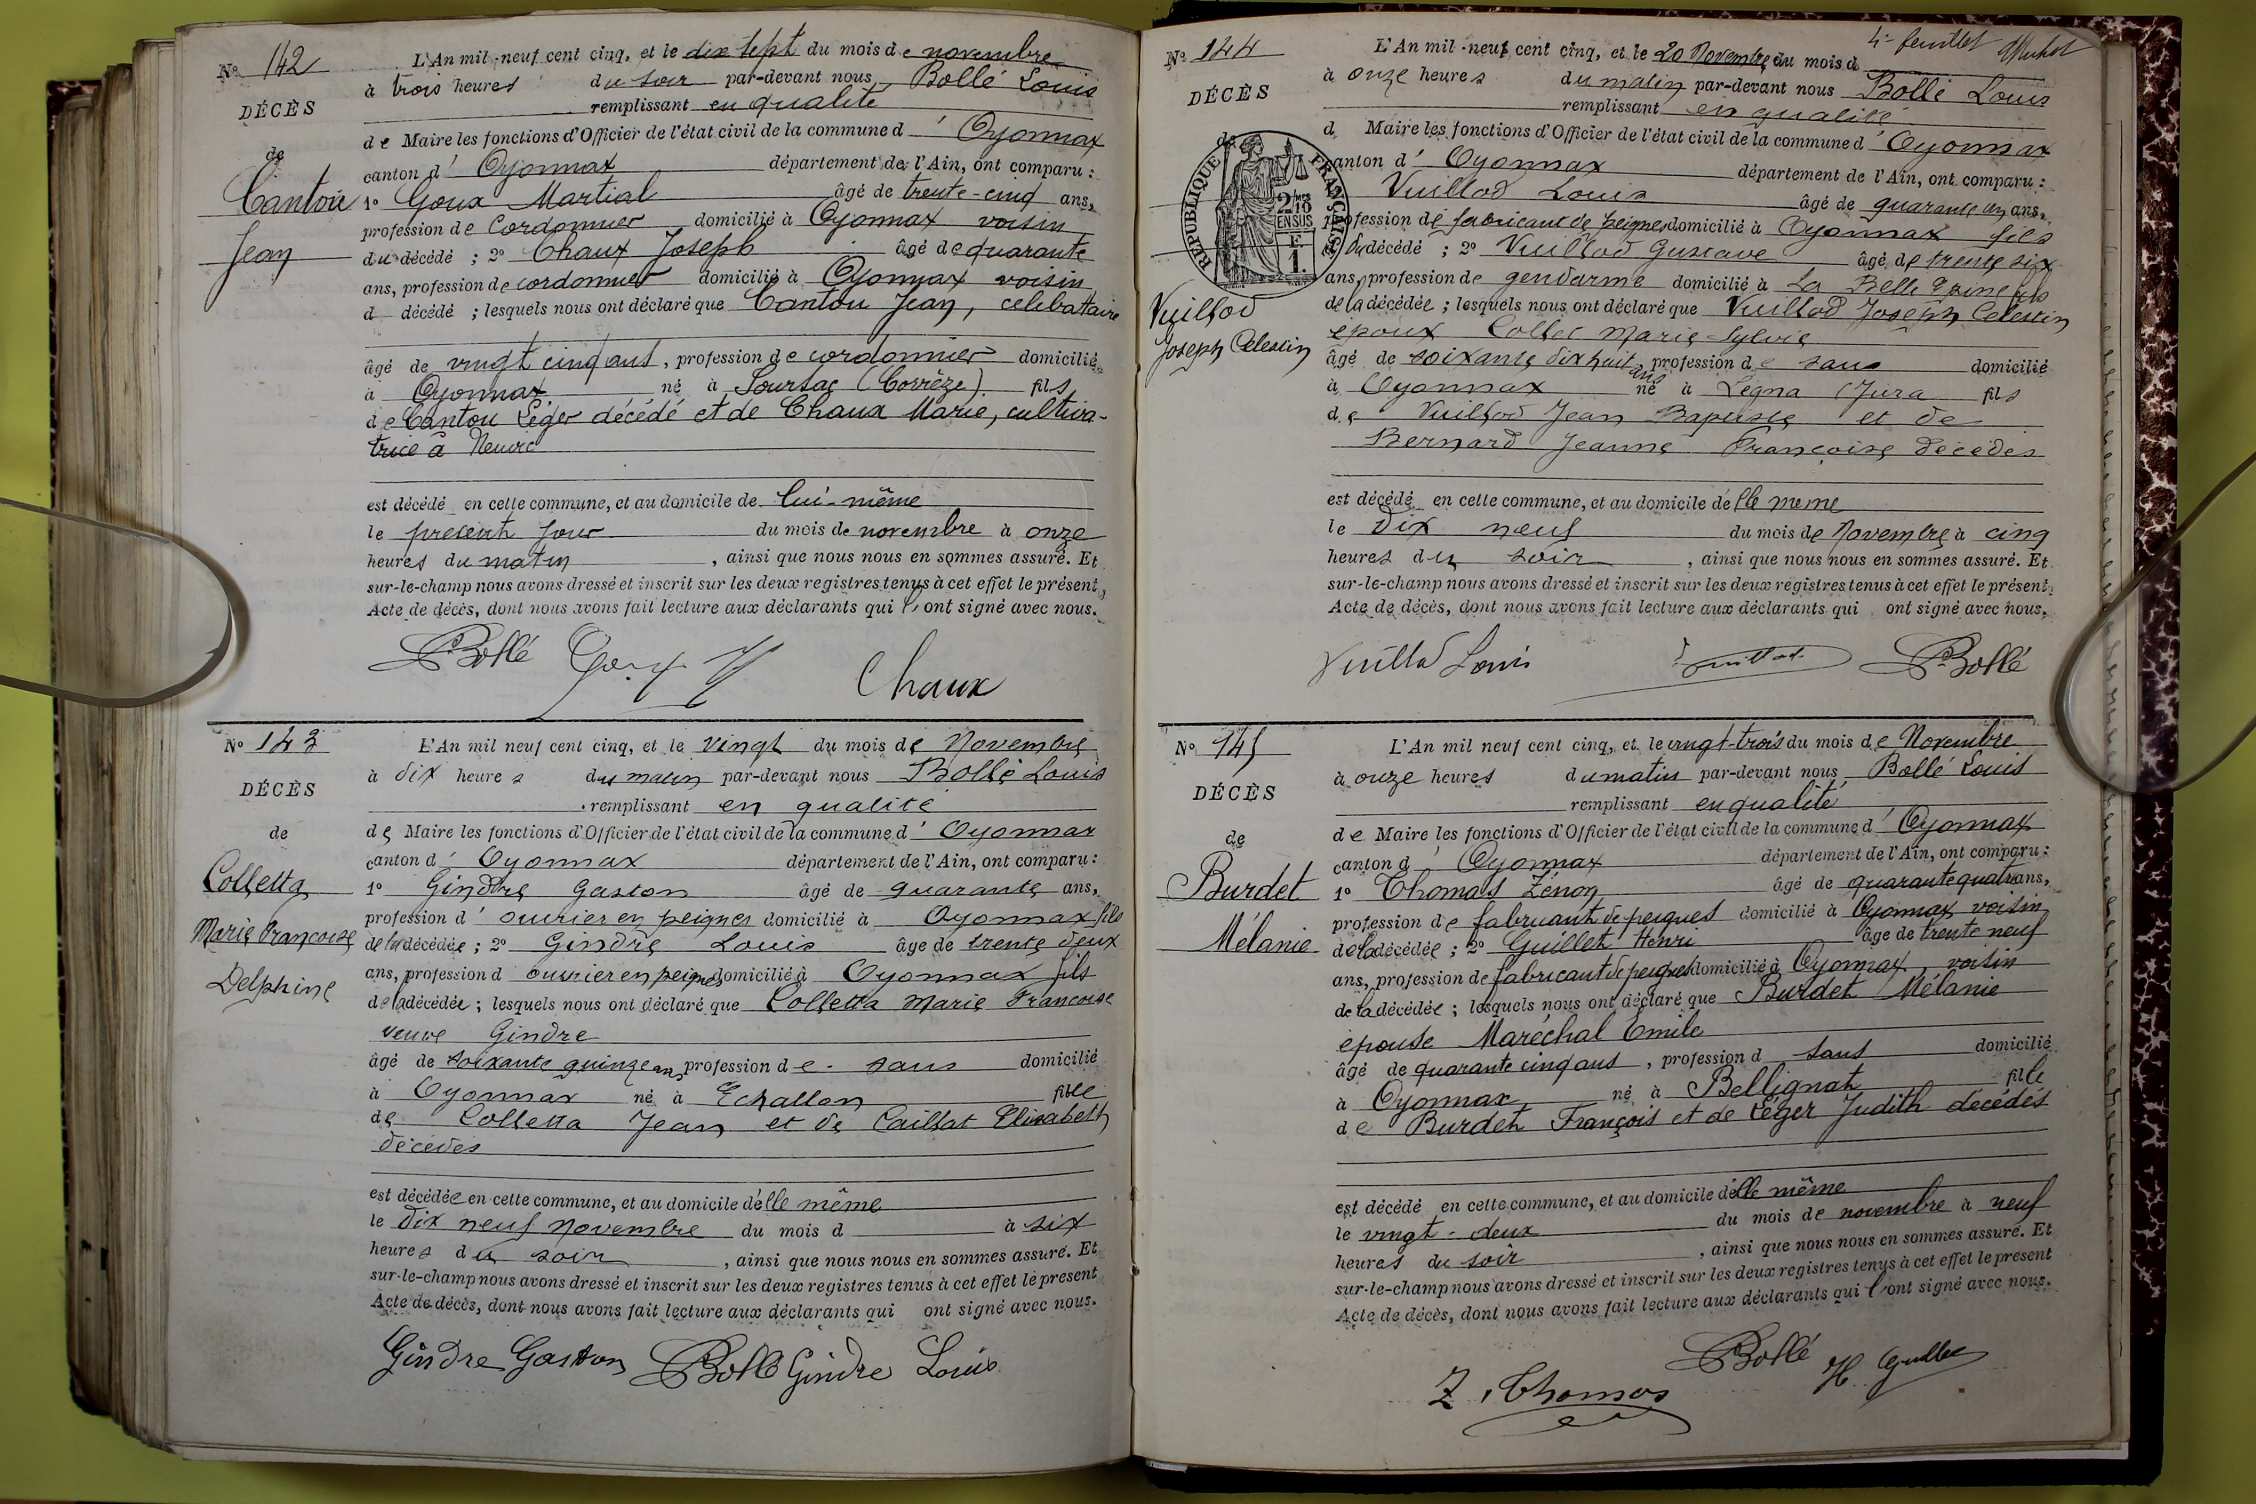 Nº 142
DÉCÈS
de
Cantou
Jean
L'An mil neuf cent cinq, et le dix sept du mois de novembre
à trois heures du soir par-devant nous Bollé Louis
remplissant en qualité
de Maire les fonctions d'Officier de l'état civil de la commune d' Oyonnax
canton d' Oyonnax département de l'Ain, ont comparu :
1º Goux Martial âgé de trente-cinq ans,
profession de Cordonnier domicilié à Oyonnax voisin
du décédé ; 2º Chaux Joseph âgé de quarante
ans, profession de cordonnier domicilié à Oyonnax voisin
d décédé ; lesquels nous ont déclaré que Cantou Jean, célibataire
âgé de vingt cinq ans, profession de cordonnier domicilié
à Oyonnax né à Soursac (Corrèze) fils
de Cantou Léger décédé et de Chaux Marie, cultiva-
trice à Neuvic
est décédé en cette commune, et au domicile de lui-même
le présent jour du mois de novembre à onze
heures du matin, ainsi que nous nous en sommes assuré. Et
sur-le-champ nous avons dressé et inscrit sur les deux registres tenus à cet effet le présent
Acte de décès, dont nous avons fait lecture aux déclarants qui l'ont signé avec nous.
Bollé Chaux
Nº 143
DÉCÈS
de
Colletta
Marie Françoise
Delphine
L'An mil neuf cent cinq, et le vingt du mois de Novembre
à dix heures du matin par-devant nous Bollé Louis
remplissant en qualité
de Maire les fonctions d'Officier de l'état civil de la commune d' Oyonnax
canton d' Oyonnax département de l'Ain, ont comparu :
1º Gindre Gaston âgé de quarante ans,
profession d' ouvrier en peignes domicilié à Oyonnax fils
de la décédée ; 2º Gindre Louis âge de trente deux
ans, profession d ouvrier en peignes domicilié à Oyonnax fils
de la décédée ; lesquels nous ont déclaré que Colletta Marie Francoise
veuve Gindre
âgé de soixante quinze ans, profession de sans domicilié
à Oyonnax né à Echallon fille
de Colletta Jean et de Caillat Elisabeth
décédés
est décédée en cette commune, et au domicile d'elle même
le dix neuf Novembre du mois d à six
heures du soir, ainsi que nous nous en sommes assuré. Et
sur-le-champ nous avons dressé et inscrit sur les deux registres tenus à cet effet le présent
Acte de décès, dont nous avons fait lecture aux déclarants qui ont signé avec nous.
Gindre Gaston Bollé Gindre Louis
4e feuillet
Nº 144
DÉCÈS
de
RÉPUBLIQUE FRANÇAISE
Vuillod
Joseph Célestin
L'An mil neuf cent cinq, et le 20 Novembre du mois d
à onze heures du matin par-devant nous Bollé Louis
remplissant en qualité
d Maire les fonctions d'Officier de l'état civil de la commune d' Oyonnax
canton d' Oyonnax département de l'Ain, ont comparu :
Vuillod Louis âgé de quarante un ans,
profession de fabricant de peignes domicilié à Oyonnax fils
du décédé ; 2º Vuillod Gustave âgé de trente six
ans, profession de gendarme domicilié à La Belle fils
de la décédée ; lesquels nous ont déclaré que Vuillod Joseph Célestin
époux Collet Marie-Sylvie
âgé de soixante dix huit ans, profession de sans domicilié
à Oyonnax né à Légna (Jura fils
de Vuillod Jean Baptiste et de
Bernard Jeanne Françoise décédés
est décédé en cette commune, et au domicile d'elle meme
le dix neuf du mois de Novembre à cinq
heures du soir, ainsi que nous nous en sommes assuré. Et
sur-le-champ nous avons dressé et inscrit sur les deux registres tenus à cet effet le présent
Acte de décès, dont nous avons fait lecture aux déclarants qui ont signé avec nous.
Vuillod Louis Vuillod Bollé
Nº 145
DÉCÈS
de
Burdet
Mélanie
L'An mil neuf cent cinq, et le vingt-trois du mois de Novembre
à onze heures du matin par-devant nous Bollé Louis
remplissant en qualité
de Maire les fonctions d'Officier de l'état civil de la commune d' Oyonnax
canton d' Oyonnax département de l'Ain, ont comparu :
1º Thomas Zénon âgé de quarante quatre ans,
profession de fabricant de peignes domicilié à Oyonnax voisin
de la décédée ; 2º Guillet Henri âge de trente neuf
ans, profession de fabricant de peignes domicilié à Oyonnax, voisin
de la décédée ; lesquels nous ont déclaré que Burdet Mélanie
épouse Maréchal Emile
âgé de quarante cinq ans, profession d sans domicilié
à Oyonnax né à Bellignat fille
de Burdet François et de Léger Judith décédés
est décédé en cette commune, et au domicile d'elle même
le vingt-deux du mois de novembre à neuf
heures du soir, ainsi que nous nous en sommes assuré. Et
sur-le-champ nous avons dressé et inscrit sur les deux registres tenus à cet effet le présent
Acte de décès, dont nous avons fait lecture aux déclarants qui l'ont signé avec nous.
Bollé H Guillet
Z. Thomas